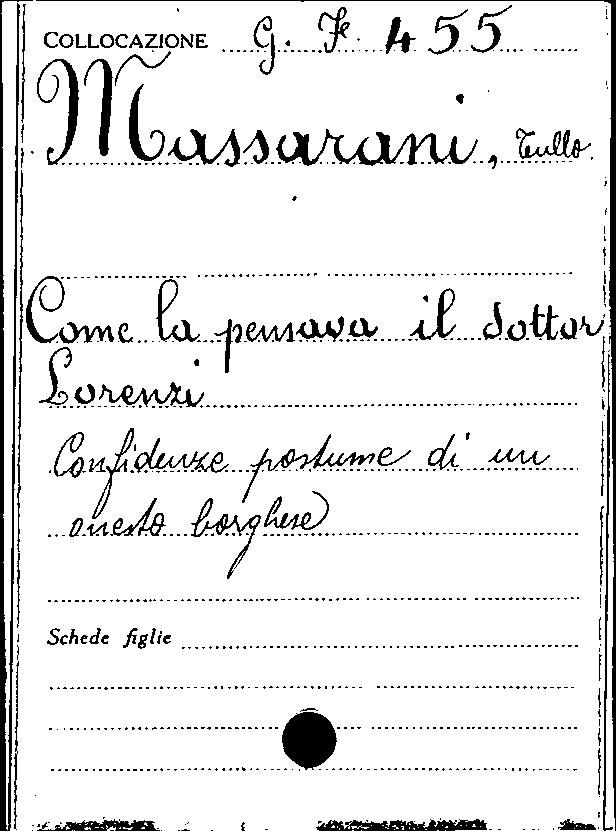 COLLOCAZIONE G. F. 455
Massarani, Tullo.
Come la pensava il dottor
Lorenzi
Confidenze postume di un
onesto borghese
Schede figlie